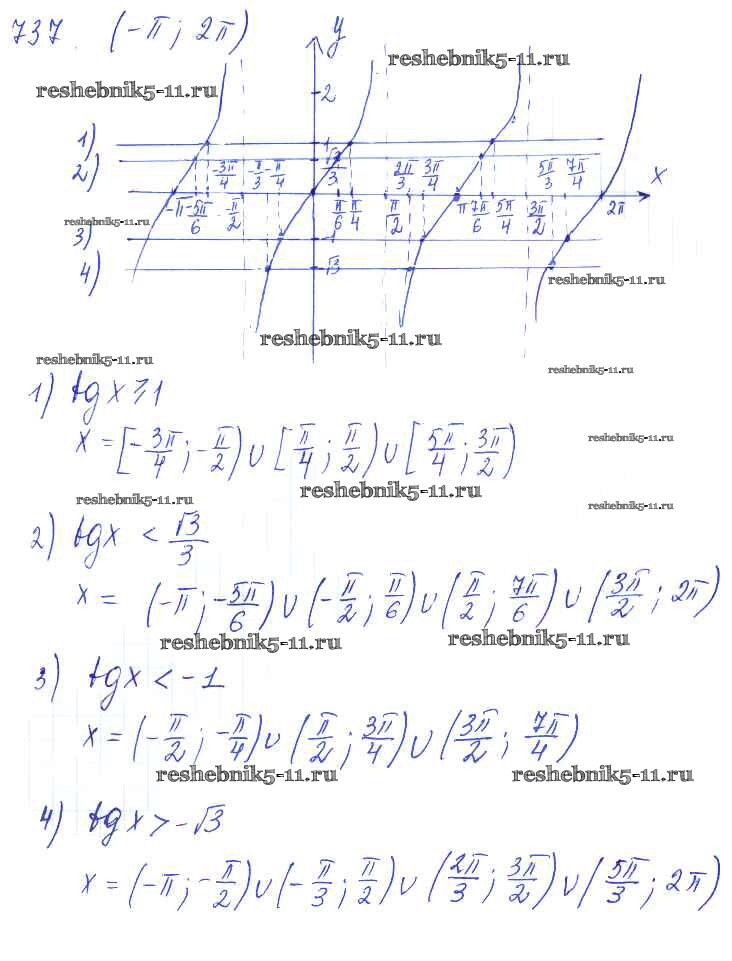 737. (-π; 2π)
y
reshebnik5-11.ru
reshebnik5-11.ru
2
1)
1
2)
√3/3
-3π/4 -π/3 -π/4 2π/3 3π/4 5π/3 7π/4 x
-π -5π/6 -π/2 π/6 π/4 π/2 π 7π/6 5π/4 3π/2 2π
reshebnik5-11.ru
3) -1
4) -√3
reshebnik5-11.ru
reshebnik5-11.ru
reshebnik5-11.ru
reshebnik5-11.ru
1) tgx ⩾ 1
x = [-3π/4; -π/2) ∪ [π/4; π/2) ∪ [5π/4; 3π/2)
reshebnik5-11.ru
reshebnik5-11.ru
reshebnik5-11.ru
reshebnik5-11.ru
2) tgx < √3/3
x = (-π; -5π/6) ∪ (-π/2; π/6) ∪ (π/2; 7π/6) ∪ (3π/2; 2π)
reshebnik5-11.ru
reshebnik5-11.ru
3) tgx < -1
x = (-π/2; -π/4) ∪ (π/2; 3π/4) ∪ (3π/2; 7π/4)
reshebnik5-11.ru
reshebnik5-11.ru
4) tgx > -√3
x = (-π; -π/2) ∪ (-π/3; π/2) ∪ (2π/3; 3π/2) ∪ (5π/3; 2π)